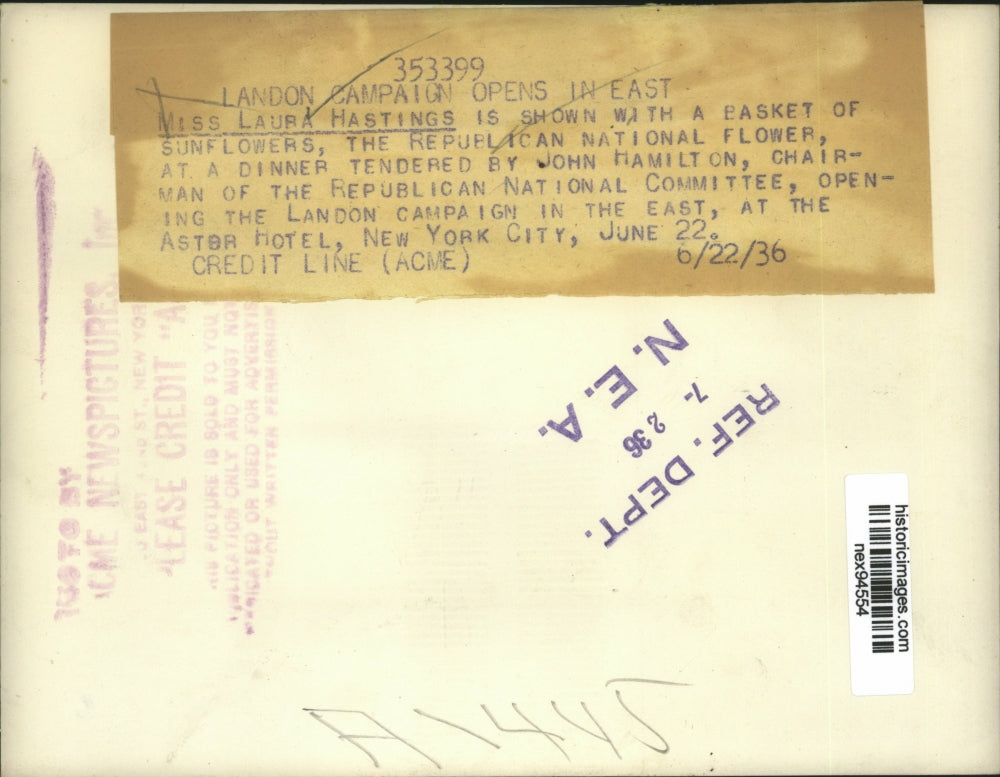 353399
LANDON CAMPAIGN OPENS IN EAST
MISS LAURA HASTINGS IS SHOWN WITH A BASKET OF
SUNFLOWERS, THE REPUBLICAN NATIONAL FLOWER,
AT A DINNER TENDERED BY JOHN HAMILTON, CHAIR-
MAN OF THE REPUBLICAN NATIONAL COMMITTEE, OPEN-
ING THE LANDON CAMPAIGN IN THE EAST, AT THE
ASTOR HOTEL, NEW YORK CITY, JUNE 22.
CREDIT LINE (ACME) 6/22/36
PHOTO BY
ACME NEWSPICTURES, Inc
EAST 42ND ST., NEW YOR
PLEASE CREDIT "A
THIS PICTURE IS SOLD TO YOU
PUBLICATION ONLY AND MUST NOT
SYNDICATED OR USED FOR ADVERTIS
WITHOUT WRITTEN PERMISSION
N. E. A.
7- 2 36
REF. DEPT.
historicimages.com
nex94554